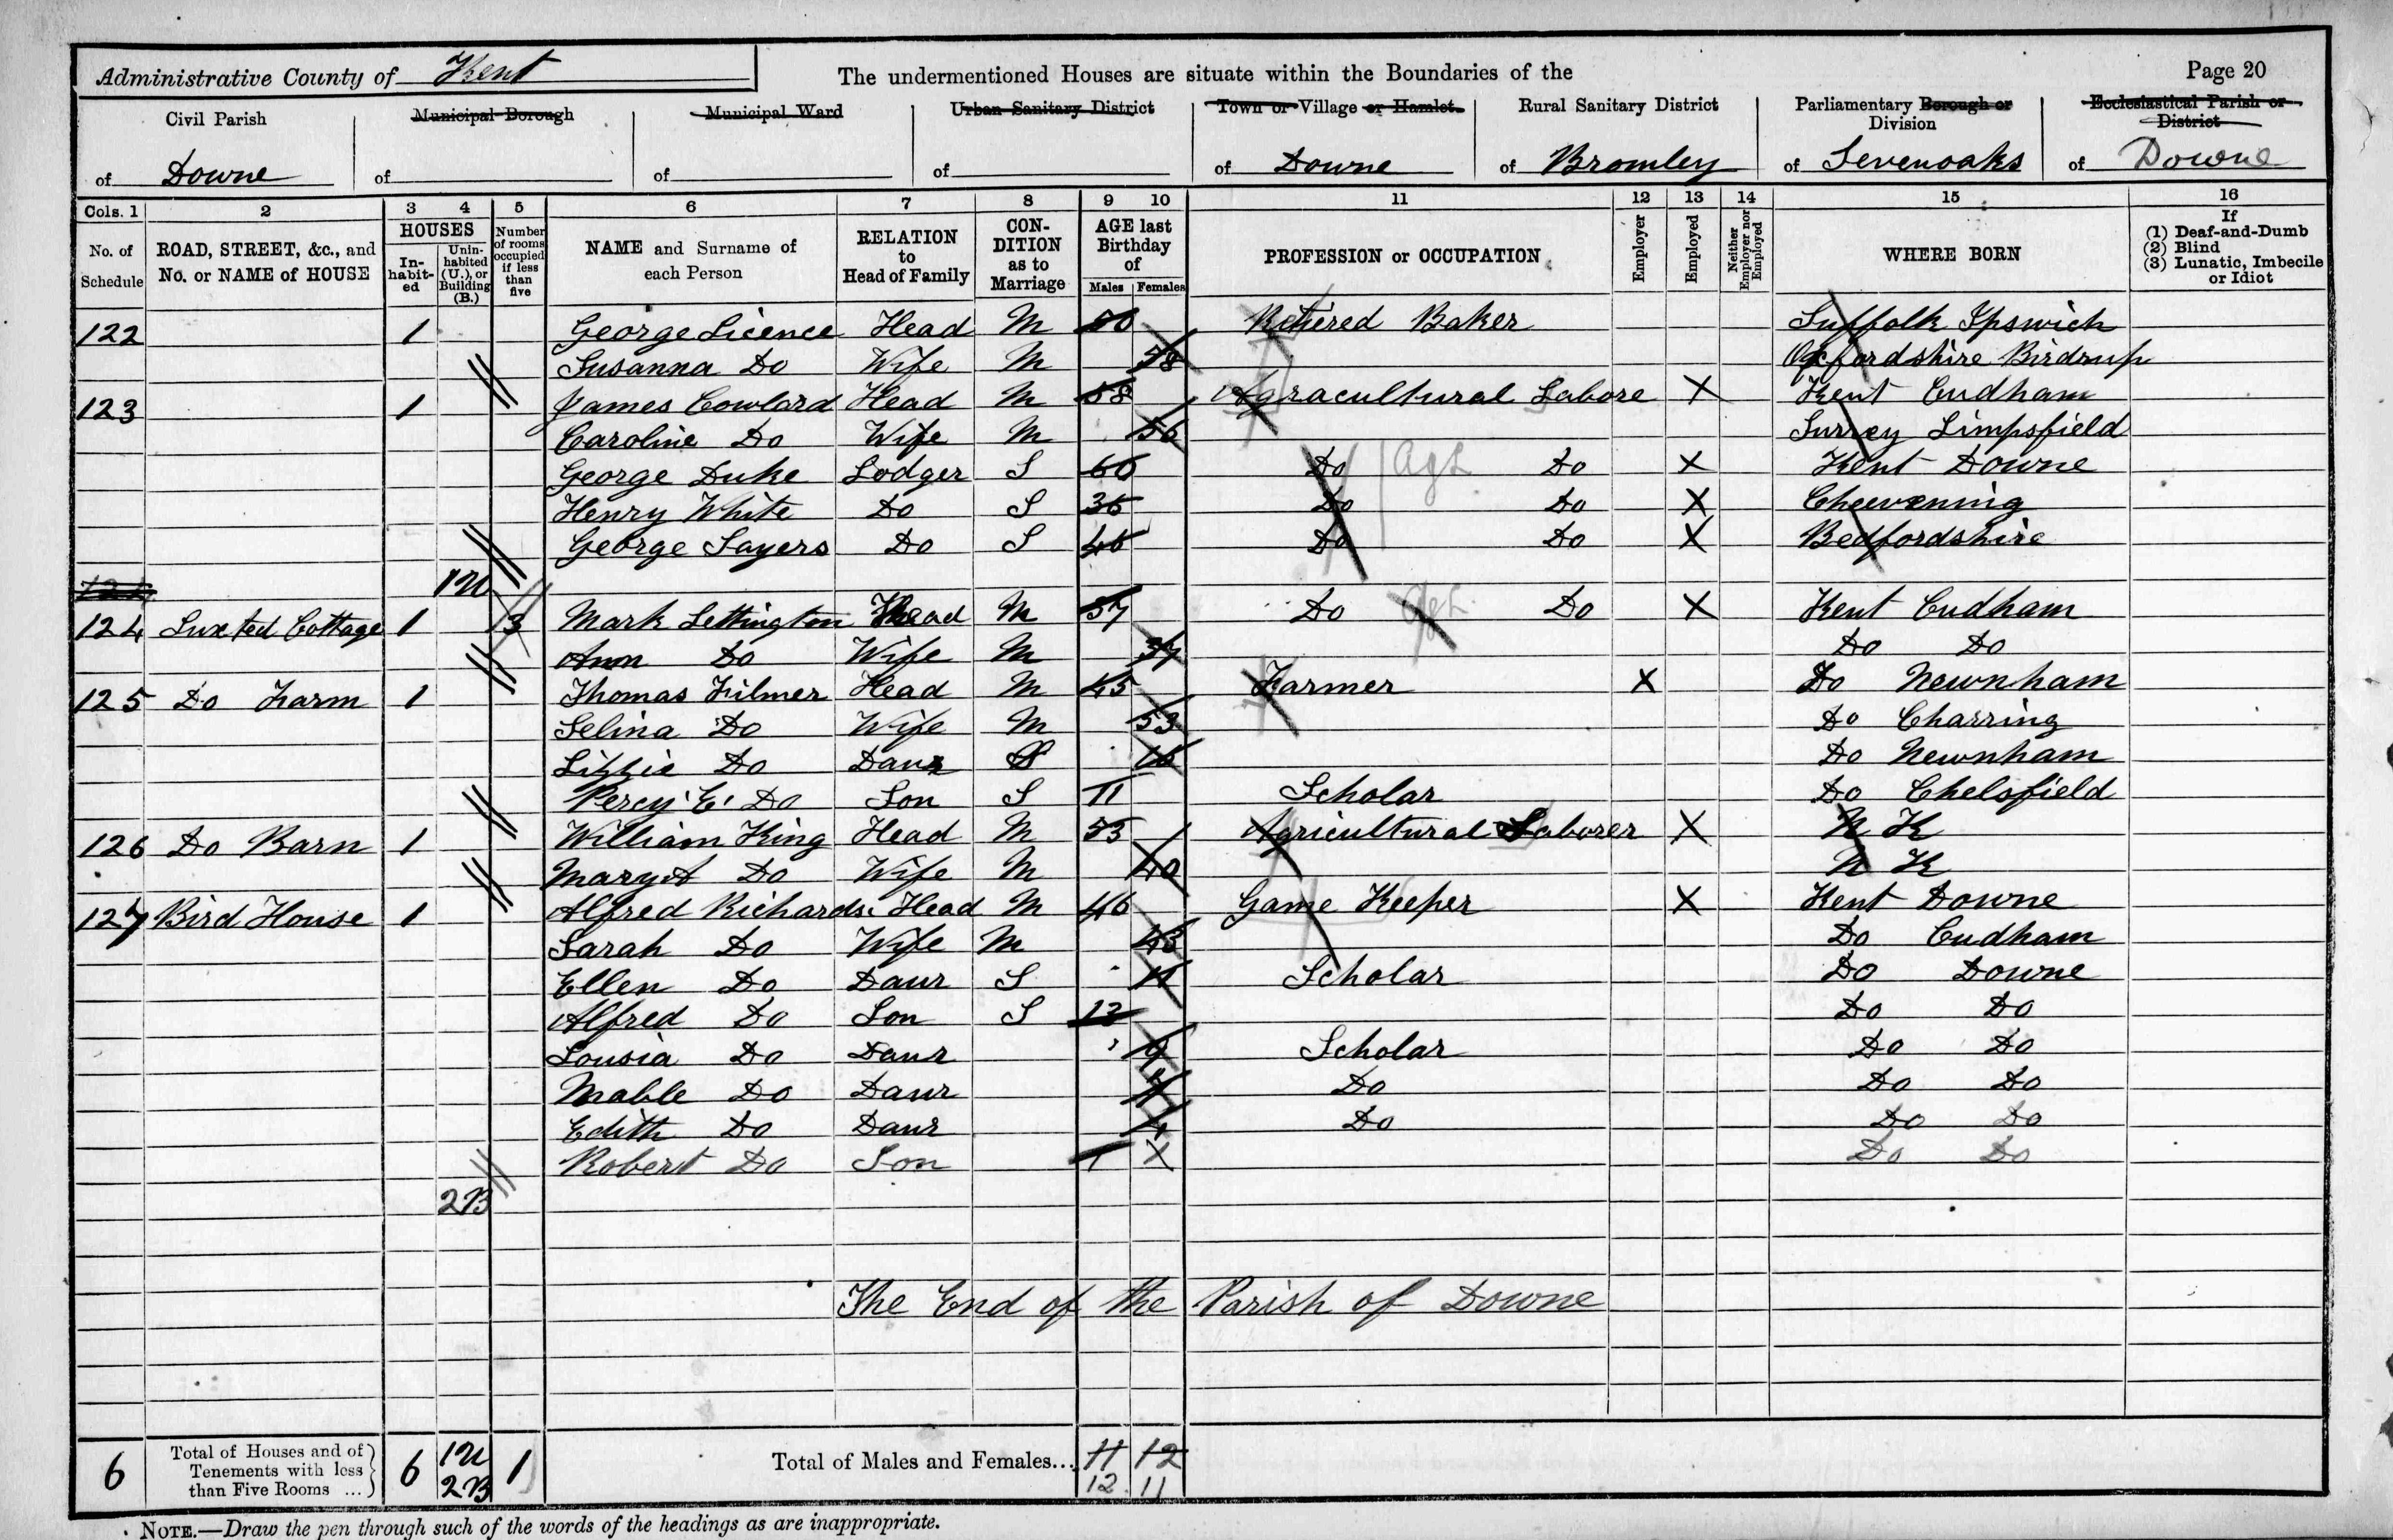 Administrative County of Kent
The undermentioned Houses are situate within the Boundaries of the
Page 20
Civil Parish of Downe
Municipal Borough of
Municipal Ward of
Urban Sanitary District of
Town or Village or Hamlet of Downe
Rural Sanitary District of Bromley
Parliamentary Borough or Division of Sevenoaks
Ecclesiastical Parish or District of Downe
Cols. 1 2 3 4 5 6 7 8 9 10 11 12 13 14 15 16
No. of Schedule
ROAD, STREET, &c., and No. or NAME of HOUSE
HOUSES
Inhabited
Uninhabited (U.), or Building (B.)
Number of rooms occupied if less than five
NAME and Surname of each Person
RELATION to Head of Family
CONDITION as to Marriage
AGE last Birthday of
Males Females
PROFESSION or OCCUPATION
Employer
Employed
Neither Employer nor Employed
WHERE BORN
If
(1) Deaf-and-Dumb
(2) Blind
(3) Lunatic, Imbecile or Idiot
122 1 George Licence Head M Retired Baker Suffolk Ipswich
Susanna Do Wife M 58 Oxfordshire Birdrup
123 1 James Cowlard Head M 58 Agracultural Labore X Kent Cudham
Caroline Do Wife M 56 Surrey Limpsfield
George Duke Lodger S Do Ag L Do X Kent Downe
Henry White Do S Do Do X Cheevening
George Sayers Do S Do Do X Bedfordshire
124 1U
124 Luxted Cottage 1 3 Mark Lettington Head M 57 Do Ag L Do X Kent Cudham
Ann Do Wife M 57 Do Do
125 Do Farm 1 Thomas Filmer Head M 45 Farmer X Do Newnham
Selina Do Wife M 53 Do Charring
Lizzie Do Daur S 16 Do Newnham
Percy E. Do Son S 11 Scholar Do Chelsfield
126 Do Barn 1 William King Head M 53 Agricultural Laborer X N K
Mary A Do Wife M 40 N K
127 Bird House 1 Alfred Richards Head M 46 Game Keeper X Kent Downe
Sarah Do Wife M 43 Do Cudham
Ellen Do Daur S 11 Scholar Do Downe
Alfred Do Son S Do Do
Lousia Do Daur 9 Scholar Do Do
Mable Do Daur Do Do Do
Edith Do Daur 4 Do Do Do
Robert Do Son 1 X Do Do
2B
The End of the Parish of Downe
6 Total of Houses and of Tenements with less than Five Rooms ... 6 1U 2B 1 Total of Males and Females... 11 12
12 11
NOTE.—Draw the pen through such of the words of the headings as are inappropriate.